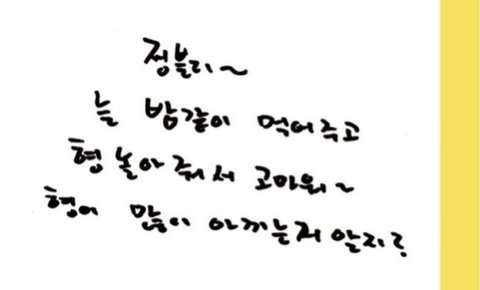 정블리~
늘 밥같이 먹어주고
형 놀아줘서 고마워~
형이 많이 아끼는거 알지?